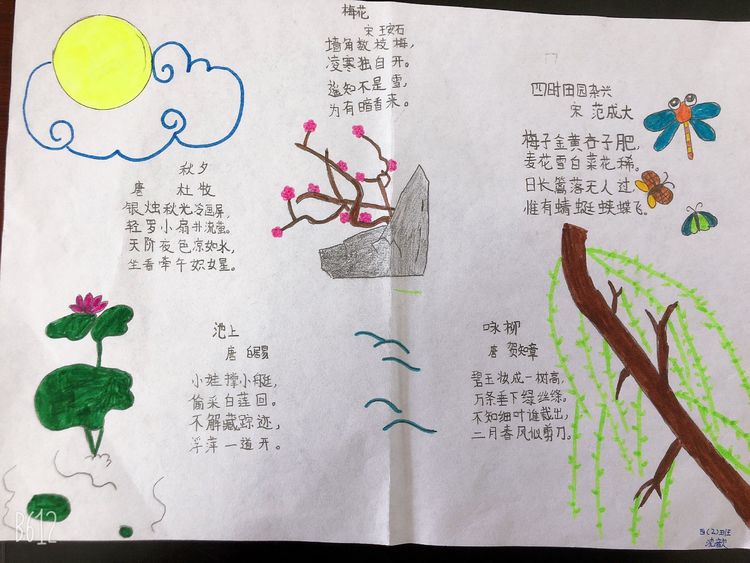 梅花
宋 王安石
墙角数枝梅，
凌寒独自开。
遥知不是雪，
为有暗香来。
四时田园杂兴
宋 范成大
梅子金黄杏子肥，
麦花雪白菜花稀。
日长篱落无人过，
惟有蜻蜓蛱蝶飞。
秋夕
唐 杜牧
银烛秋光冷画屏，
轻罗小扇扑流萤。
天阶夜色凉如水，
坐看牵牛织女星。
池上
唐 白居易
小娃撑小艇，
偷采白莲回。
不解藏踪迹，
浮萍一道开。
咏柳
唐 贺知章
碧玉妆成一树高，
万条垂下绿丝绦。
不知细叶谁裁出，
二月春风似剪刀。
(2)班
B612